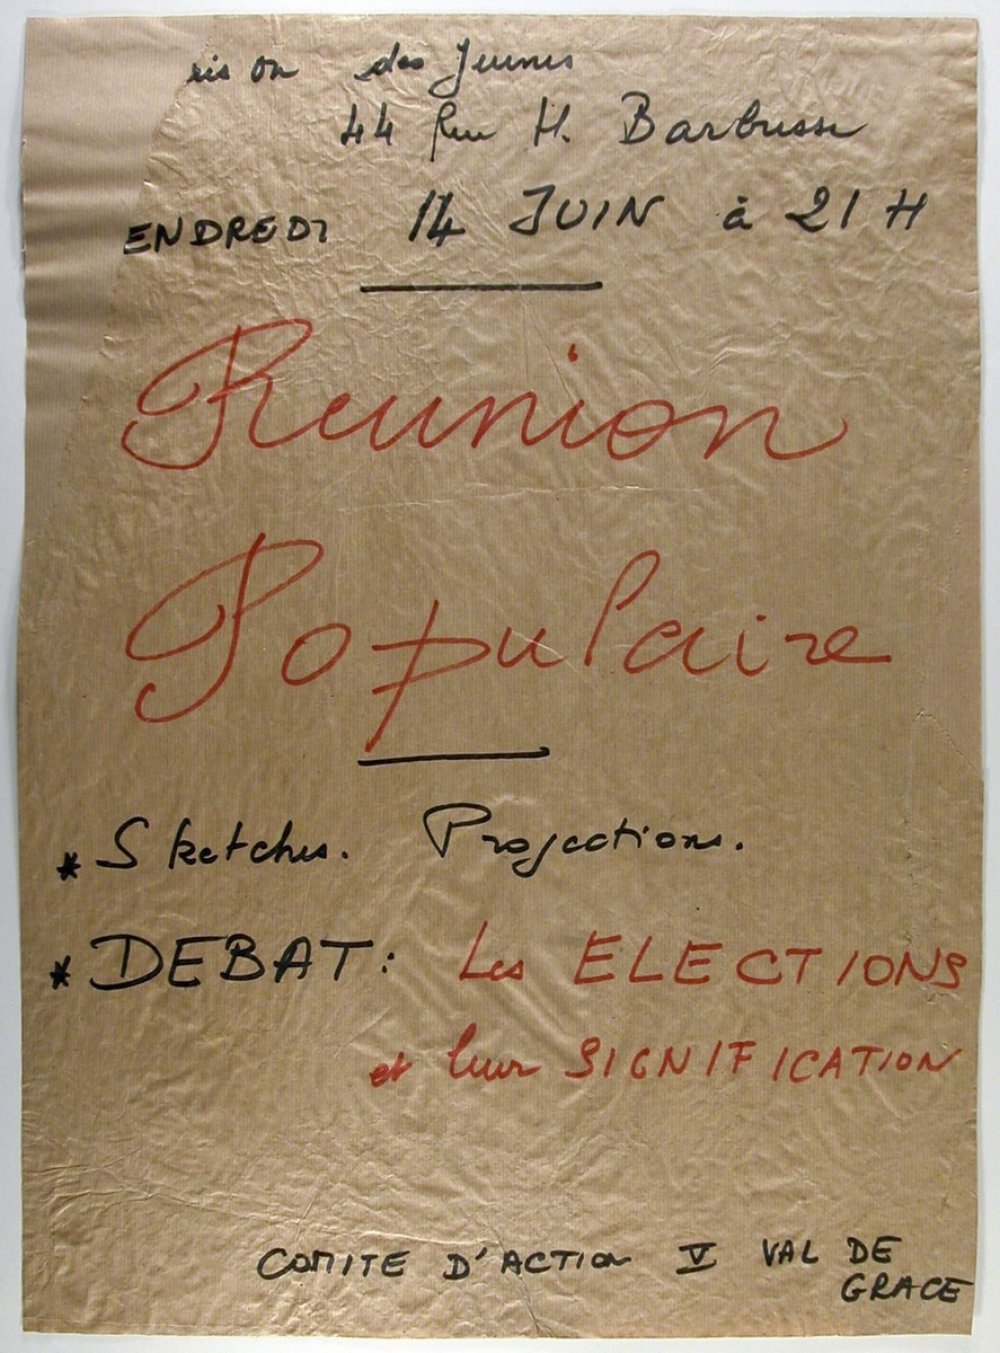 ris on des Jeunes
44 Rue H. Barbusse
ENDREDI 14 JUIN à 21 H
Reunion
Populaire
* Sketches. Projections.
* DEBAT: Les ELECTIONS
et leur SIGNIFICATION
COMITE D'ACTION V VAL DE
GRACE